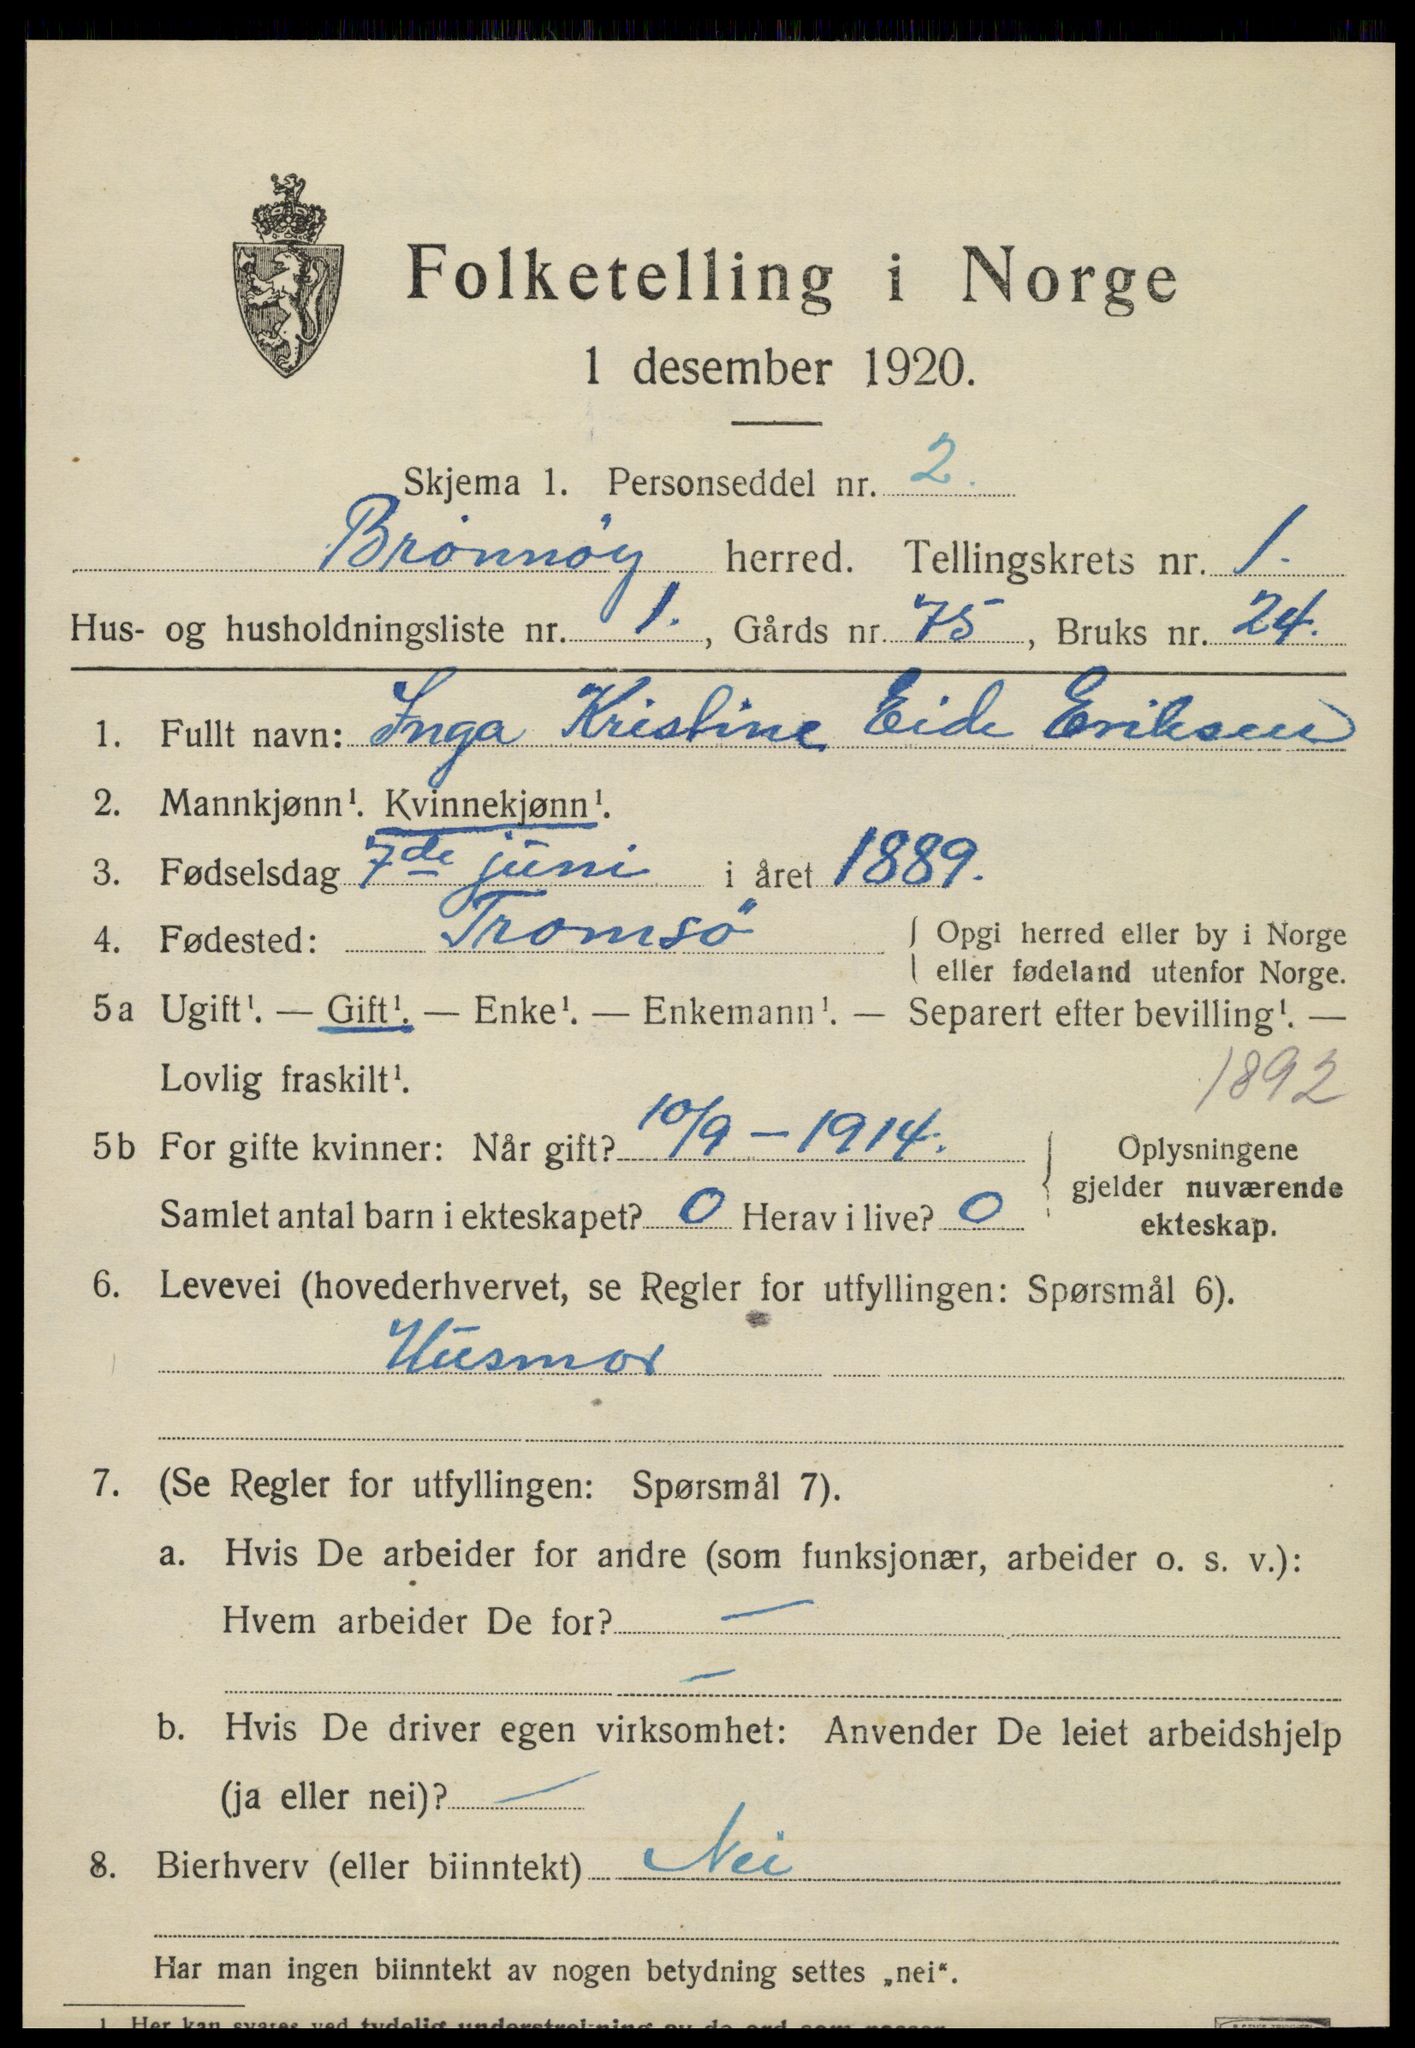 Folketelling i Norge
1 desember 1920.
Skjema 1. Personseddel nr. 2.
Brønnøy herred. Tellingskrets nr. 1.
Hus- og husholdningsliste nr. 1., Gårds nr. 75, Bruks nr. 24.
1. Fullt navn: Inga Kristine Eide Eriksen
2. Mannkjønn¹. Kvinnekjønn¹.
3. Fødselsdag 7de juni i året 1889.
4. Fødested: Tromsö { Opgi herred eller by i Norge
eller fødeland utenfor Norge.
5a Ugift¹. — Gift¹. — Enke¹. — Enkemann¹. — Separert efter bevilling¹. —
Lovlig fraskilt¹.
1892
5b For gifte kvinner: Når gift? 10/9 – 1914.
Samlet antal barn i ekteskapet? 0 Herav i live? 0
{ Oplysningene
gjelder nuværende
ekteskap.
6. Levevei (hovederhvervet, se Regler for utfyllingen: Spørsmål 6).
Husmor
7. (Se Regler for utfyllingen: Spørsmål 7).
a. Hvis De arbeider for andre (som funksjonær, arbeider o. s. v.):
Hvem arbeider De for? —
—
b. Hvis De driver egen virksomhet: Anvender De leiet arbeidshjelp
(ja eller nei)? —
8. Bierhverv (eller biinntekt) Nei
Har man ingen biinntekt av nogen betydning settes „nei“.
1 Her kan svares ved tydelig understrekning av de ord som passer.